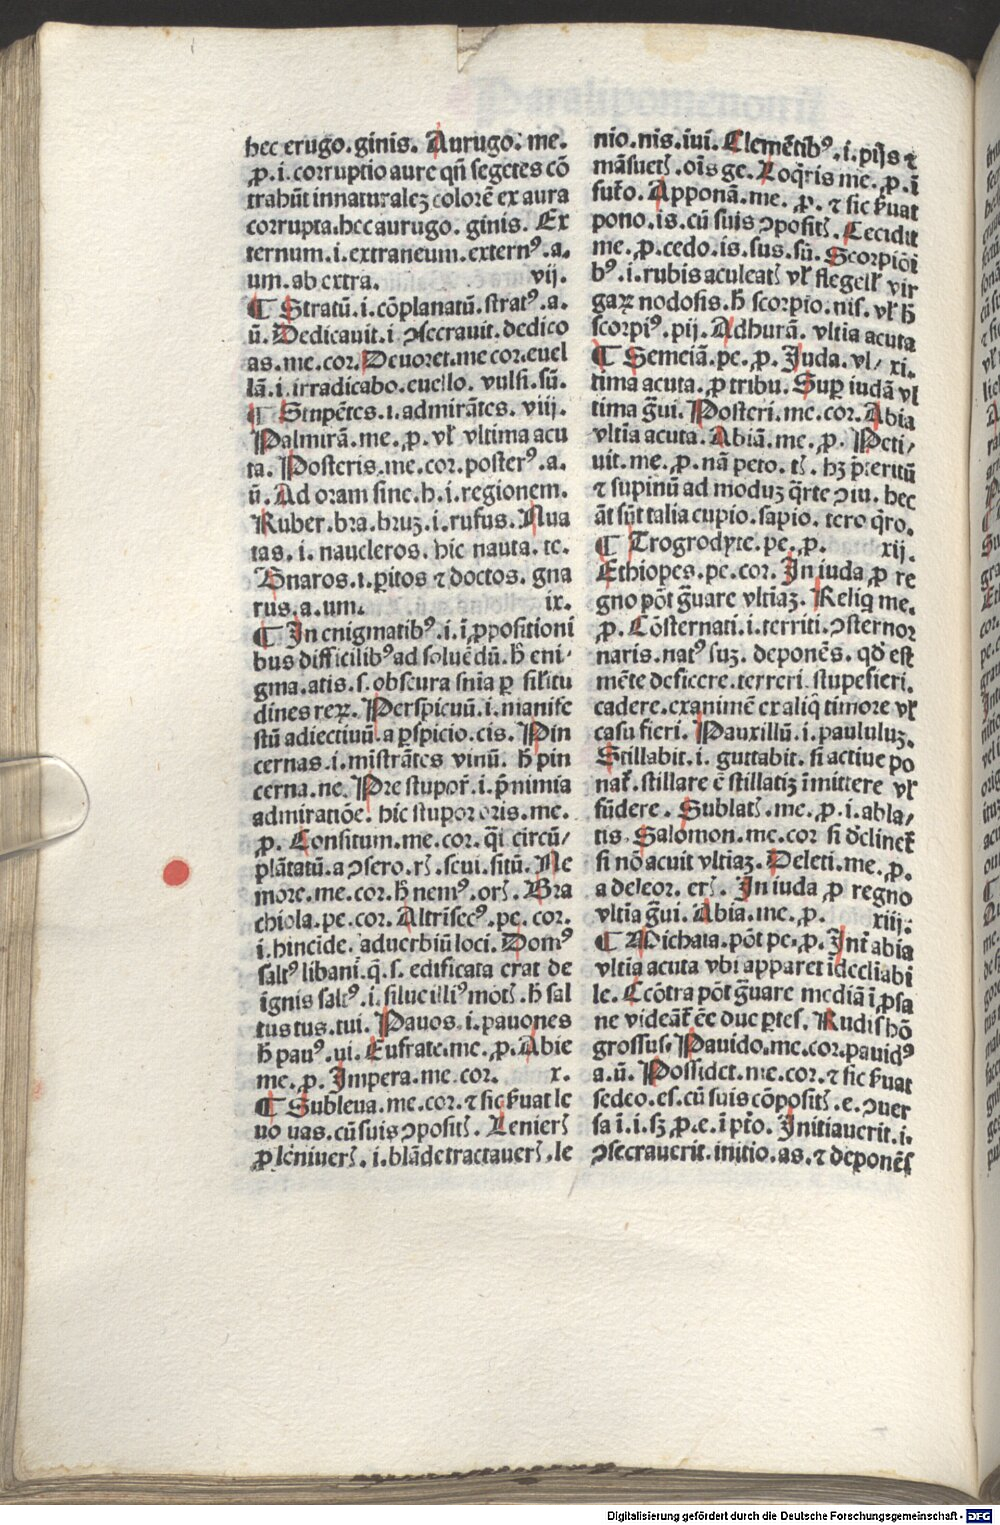 hec erugo.ginis. Aurugo. me.
ꝓ.i.corruptio aure qn̄ segetes cō
trahūt innaturalez colorē ex aura
corrupta.hec aurugo. ginis. Ex
ternum.i.extraneum.externꝰ.a.
um.ab extra. vij.
¶ Stratū.i.cōplanatū.stratꝰ.a.
ū. Dedicauit.i ↄsecrauit.dedico
as.me.cor. Deuoret.me cor.euel
lā.i.irradicabo.euello. vulsi.sū.
¶ Stupētes.i.admirātes. viij.
Palmirā.me.ꝓ.vł vltima acu
ta. Posteris.me.cor.posterꝰ.a.
ū. Ad oram sine.h.i.regionem.
Ruber.bra.bruz.i.rufus. Nua
tas.i.naucleros. hic nauta.te.
Gnaros.i.ꝑitos ⁊ doctos. gna
rus.a.um. ix.
¶ In enigmatibꝰ.i.ī ꝓpositioni
bus difficilibꝰ ad soluēdū. h̄ eni⸗
gma.atis.s.obscura snīa ꝑ sil̄itu
dines reꝝ. Perspicuū.i.manife
stū adiectiuū a ꝑspicio.cis. Pin
cernas.i.mīstrātes vinū. h̄ pin
cerna.ne. Pre stupor̄.i.p̄nimia
admiratiōe. hic stupor oris.me.
ꝓ. Consitum.me.cor.q̄i circū⸗
plātatū.a ↄsero.rꝭ.seui.sitū. Ne
more.me.cor.h̄ nemꝰ.orꝭ. Bra
chiola.pe.cor. Altrisecꝰ.pe.cor.
i.hincide.aduerbiū loci. Domꝰ
saltꝰ libani.q̄.s. edificata erat de
ignis saltꝰ.i.silue illiꝰ motꝭ.h̄ sal
tus tus.tui. Pauos.i.pauones
h̄ pauꝰ.ui. Eufrate.me.ꝓ. Abie
me.ꝓ. Impera.me.cor. x.
¶ Subleua.me.cor.⁊ sic ẜuat le
uo uas.cū suis ↄpositꝭ. Lenierꝭ
ꝓ lēniuerꝭ.i.blāde tractauerꝭ.le
nio.nis.iui. Clemētibꝰ.i.pijs ⁊
māsuetꝭ.oīs ge. Loq̄ris me.ꝓ.ī
fut̄o. Apponā.me.ꝓ.⁊ sic ẜuat
pono.is.cū suis ↄpositꝭ. Cecidit
me.ꝓ.cedo.is.sus.sū. Scorpiōi
bꝰ.i.rubis aculeatꝭ vł flegell̄ vir
gaꝝ nodosis.h̄ scorpio.nis.vł h̄
scorpiꝰ.pij. Adhurā. vltīa acuta
¶ Semeiā.pe.ꝓ. Juda.vl⸗ xi.
tima acuta.ꝓ tribu. Suꝑ iudā vl
tima g̃ui. Posteri.me.cor. Abia
vltīa acuta. Abiā.me.ꝓ. Peti⸗
uit.me.ꝓ.nā peto.tꝭ.hꝫ p̄teritū
⁊ supinū ad moduꝫ q̄rte ↄiu. hec
āt sūt talia cupio.sapio.tero q̄ro.
¶ Trogrodyte.pe.ꝓ. xij.
Ethiopes.pe.cor. In iuda ꝓ re
gno pōt g̃uare vltīaꝫ. Reliq me.
ꝓ. Cōsternati.i.territi.ↄsternor
naris.natꝰ suꝫ. deponēs. qd̄ est
mēte deficere.terreri.stupefieri.
cadere.exanimē ex aliq̄ timore vł
casu fieri. Pauxillū.i.paululuꝫ.
Stillabit.i. guttabit. si actiue po
nat̄.stillare ē stillatiꝫ īmittere vł
fūdere. Sublatꝭ.me.ꝓ.i.abla⸗
tis. Salomon.me.cor si dc̄linet̄
si nō acuit vltīaꝫ. Deleti.me.ꝓ.
a deleor.erꝭ. In iuda ꝓ regno
vltīa g̃ui. Abia.me.ꝓ. xiij.
¶ Michaia.pōt pe.ꝓ. Int̄ abia
vltīa acuta vbi apparet īdecliabi
le. Ecōtra pōt g̃uare mediā ī ꝓsa
ne videāt̄ ēe due ꝑtes. Rudis hō
grossus. Pauido.me.cor.pauidꝰ
a.ū. Possidet.me.cor.⁊ sic ẜuat
sedeo.es.cū suis cōpositꝭ.e.ↄuer
sa ī.i.sꝫ ꝓ.e.ī pt̄o. Initiauerit.i.
ↄsecrauerit.initio.as.⁊ deponēs
Digitalisierung gefördert durch die Deutsche Forschungsgemeinschaft - DFG